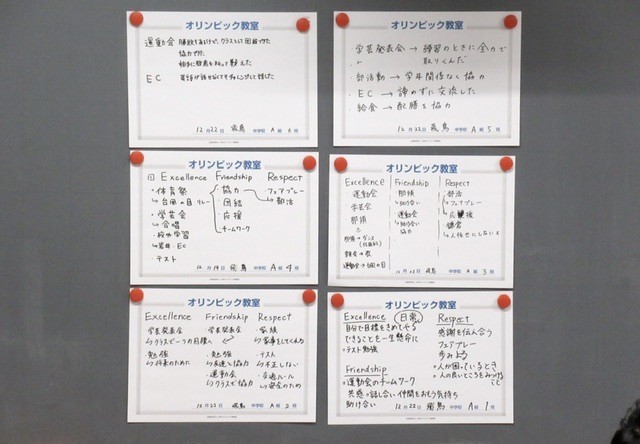 オリンピック教室
運動会 勝敗をあげて、クラスとして団結できた
協力できた
相手に敬意をもって戦えた
EC 英語が話せなくてもチャレンジして話した
12月22日 飛鳥 中学校 A組 6号
オリンピック教室
学芸発表会 → 練習のときに全力で
取りくんだ
部活動 → 学年関係なく協力
EC → 諦めずに交流した
給食 → 配膳を協力
12月22日 飛鳥 中学校 A組 5号
オリンピック教室
Excellence Friendship Respect
・体育祭
↳台風の目 リレー
・学芸会
↳合唱
・校外学習
・テスト
・協力
・団結
・応援
・チームワーク
・フェアプレー
↳部活
飛鳥 中学校 A組 4号
オリンピック教室
Excellence
運動会
学芸会
那須
Friendship
那須
↳助け合い
運動会
↳助け合い
協力
Respect
・部活
↳フェアプレー
・応援
・鎌倉
↳人任せにしない
飛鳥 中学校 A組 3号
オリンピック教室
Excellence Friendship Respect
学芸発表会
↳クラスで一つの目標へ
・勉強
↳将来のために
・学芸発表会
・勉強
↳友達と協力
・運動会
↳クラスで協力
・家族
↳家事をしてくれる
・テスト
↳不正しない
・交通ルール
↳安全のため
12月22日 飛鳥 中学校 A組 2号
オリンピック教室
Excellence (日常)
自分で目標をきめてやる
できることを一生懸命に
・テスト勉強
Friendship
・運動会のチームワーク
共感・話し合い・仲間をおもう気持ち
助け合い
Respect
感謝を伝え合う
フェアプレー
歩みよる
・人が困っているとき
・人の良いところをみつける
こと
12月22日 飛鳥 中学校 A組 1号